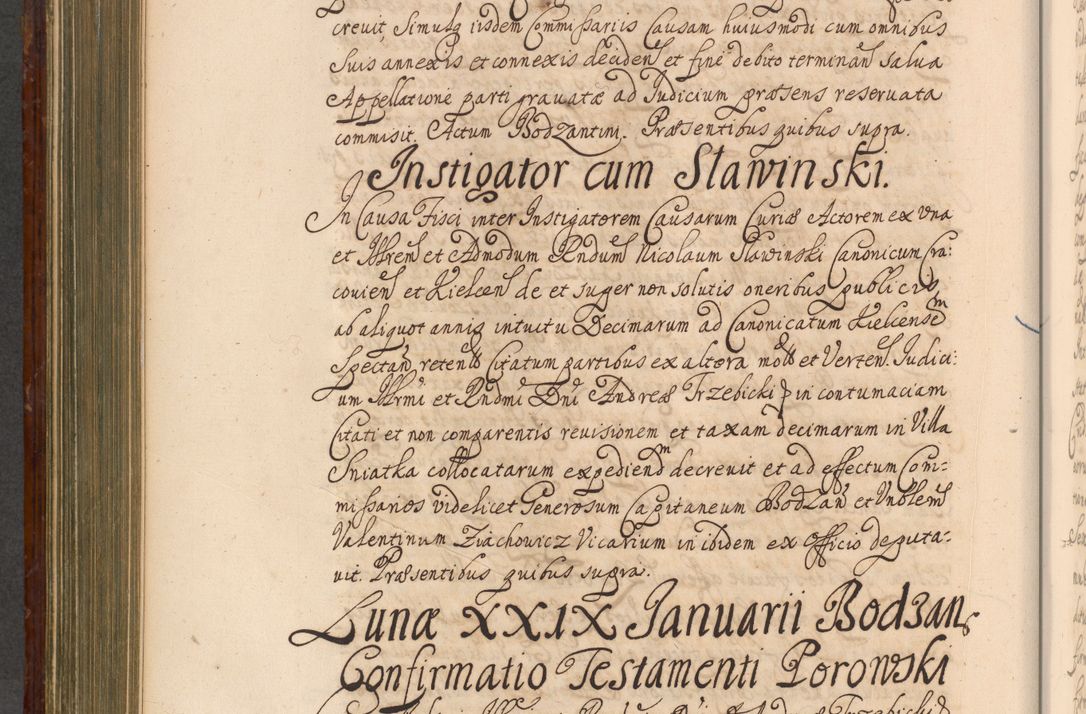 crevit, Simulq iisdem Commissariis Causam huiusmodi cum omnibus
Suis annexis et connexis deciden et fine debito terminan salva
Appellatione parti gravatæ ad Judicium præsens reservata
commisit. Actum Bodzantini. Præsentibus quibus supra.
Instigator cum Slawinski.
In Causa Fisci inter Instigatorem Causarum Curiæ Actorem ex una
et Illrem et Admodum Rndum Nicolaum Slawinski Canonicum Cra:
covien et Kielcen de et super non solutis oneribus publicis
ab aliquot annis intuitu Decimarum ad Canonicatum Kielcensem
Spectan retent Citatum partibus ex altera mott et Verten. Judici:
um Illrmi et Rndmi Dni Andreæ Trzebicki in contumaciam
Citati et non comparentis revisionem et taxam decimarum in Villa
Sniatka collocatarum expediendm decrevit et ad effectum Com:
missarios videlicet Generosum Capitaneum Bodzan et Vnblem
Valentinum Ziachowicz Vicarium in ibidem ex Officio deputa:
vit. Præsentibus quibus supra.
Lunæ XXIX Januarii Bodzan
Confirmatio Testamenti Porowski
Trzebicki